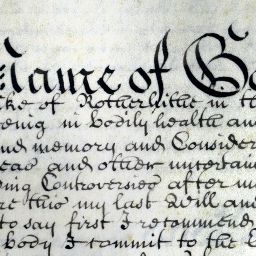 Name of Go
ke of Rotherhithe in th
eing in bodily health and
nd memory and Consider
eas and other uncertain
ing Controversies after m
re this my last Will and
to say first I recommend
body I commit to the E